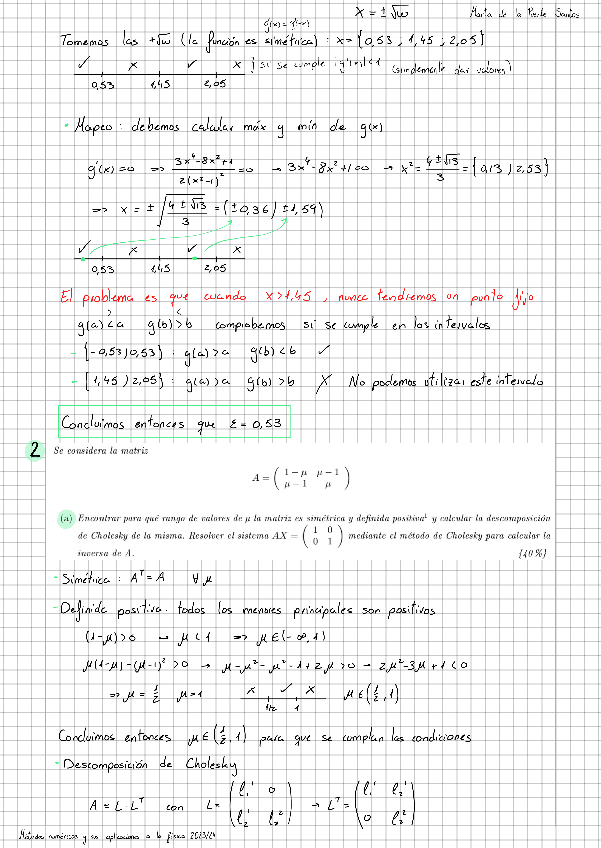 x = ± √w
Marta de la Fuente Santos
g(x) = g(-x)
Tomemos las +√w (la función es simétrica) : x = {0,53 ; 1,45 ; 2,05}
✓ x ✓ x } si se cumple |g'(x)| < 1 (simplemente dar valores)
0,53 1,45 2,05
• Mapeo : debemos calcular máx y mín de g(x)
g'(x) = 0 => (3x⁴-8x²+1)/(2(x²-1)²) = 0 → 3x⁴-8x²+1=0 → x² = (4±√13)/3 = {0,13 ; 2,53}
=> x = ± √((4±√13)/3) = (±0,36 ; ±1,59)
✓ x ✓ x
0,53 1,45 2,05
El problema es que cuando x>1,45 , nunca tendremos un punto fijo
g(a) > a g(b) < b comprobemos si se cumple en los intervalos
- [-0,53 ; 0,53] : g(a) > a g(b) < b ✓
- [1,45 ; 2,05] : g(a) > a g(b) > b X No podemos utilizar este intervalo
Concluimos entonces que ε = 0,53
2 Se considera la matriz
A = ( 1 − μ μ − 1
μ − 1 μ )
(a) Encontrar para qué rango de valores de μ la matriz es simétrica y definida positiva¹ y calcular la descomposición
de Cholesky de la misma. Resolver el sistema AX = ( 1 0 0 1 ) mediante el método de Cholesky para calcular la
inversa de A. [40 %]
- Simétrica : Aᵀ = A ∀ μ
- Definida positiva: todos los menores principales son positivos
(1-μ) > 0 → μ < 1 => μ ∈ (-∞, 1)
μ(1-μ) - (μ-1)² > 0 → μ - μ² - μ² - 1 + 2μ > 0 → 2μ² - 3μ + 1 < 0
=> μ = 1/2 μ = 1 x ✓ x μ ∈ (1/2, 1)
1/2 1
Concluimos entonces μ ∈ (1/2, 1) para que se cumplan las condiciones
- Descomposición de Cholesky
A = L Lᵀ con L = ( l₁¹ 0 l₂¹ l₂² ) → Lᵀ = ( l₁¹ l₂¹ 0 l₂² )
Métodos numéricos y sus aplicaciones a la física 2023/24